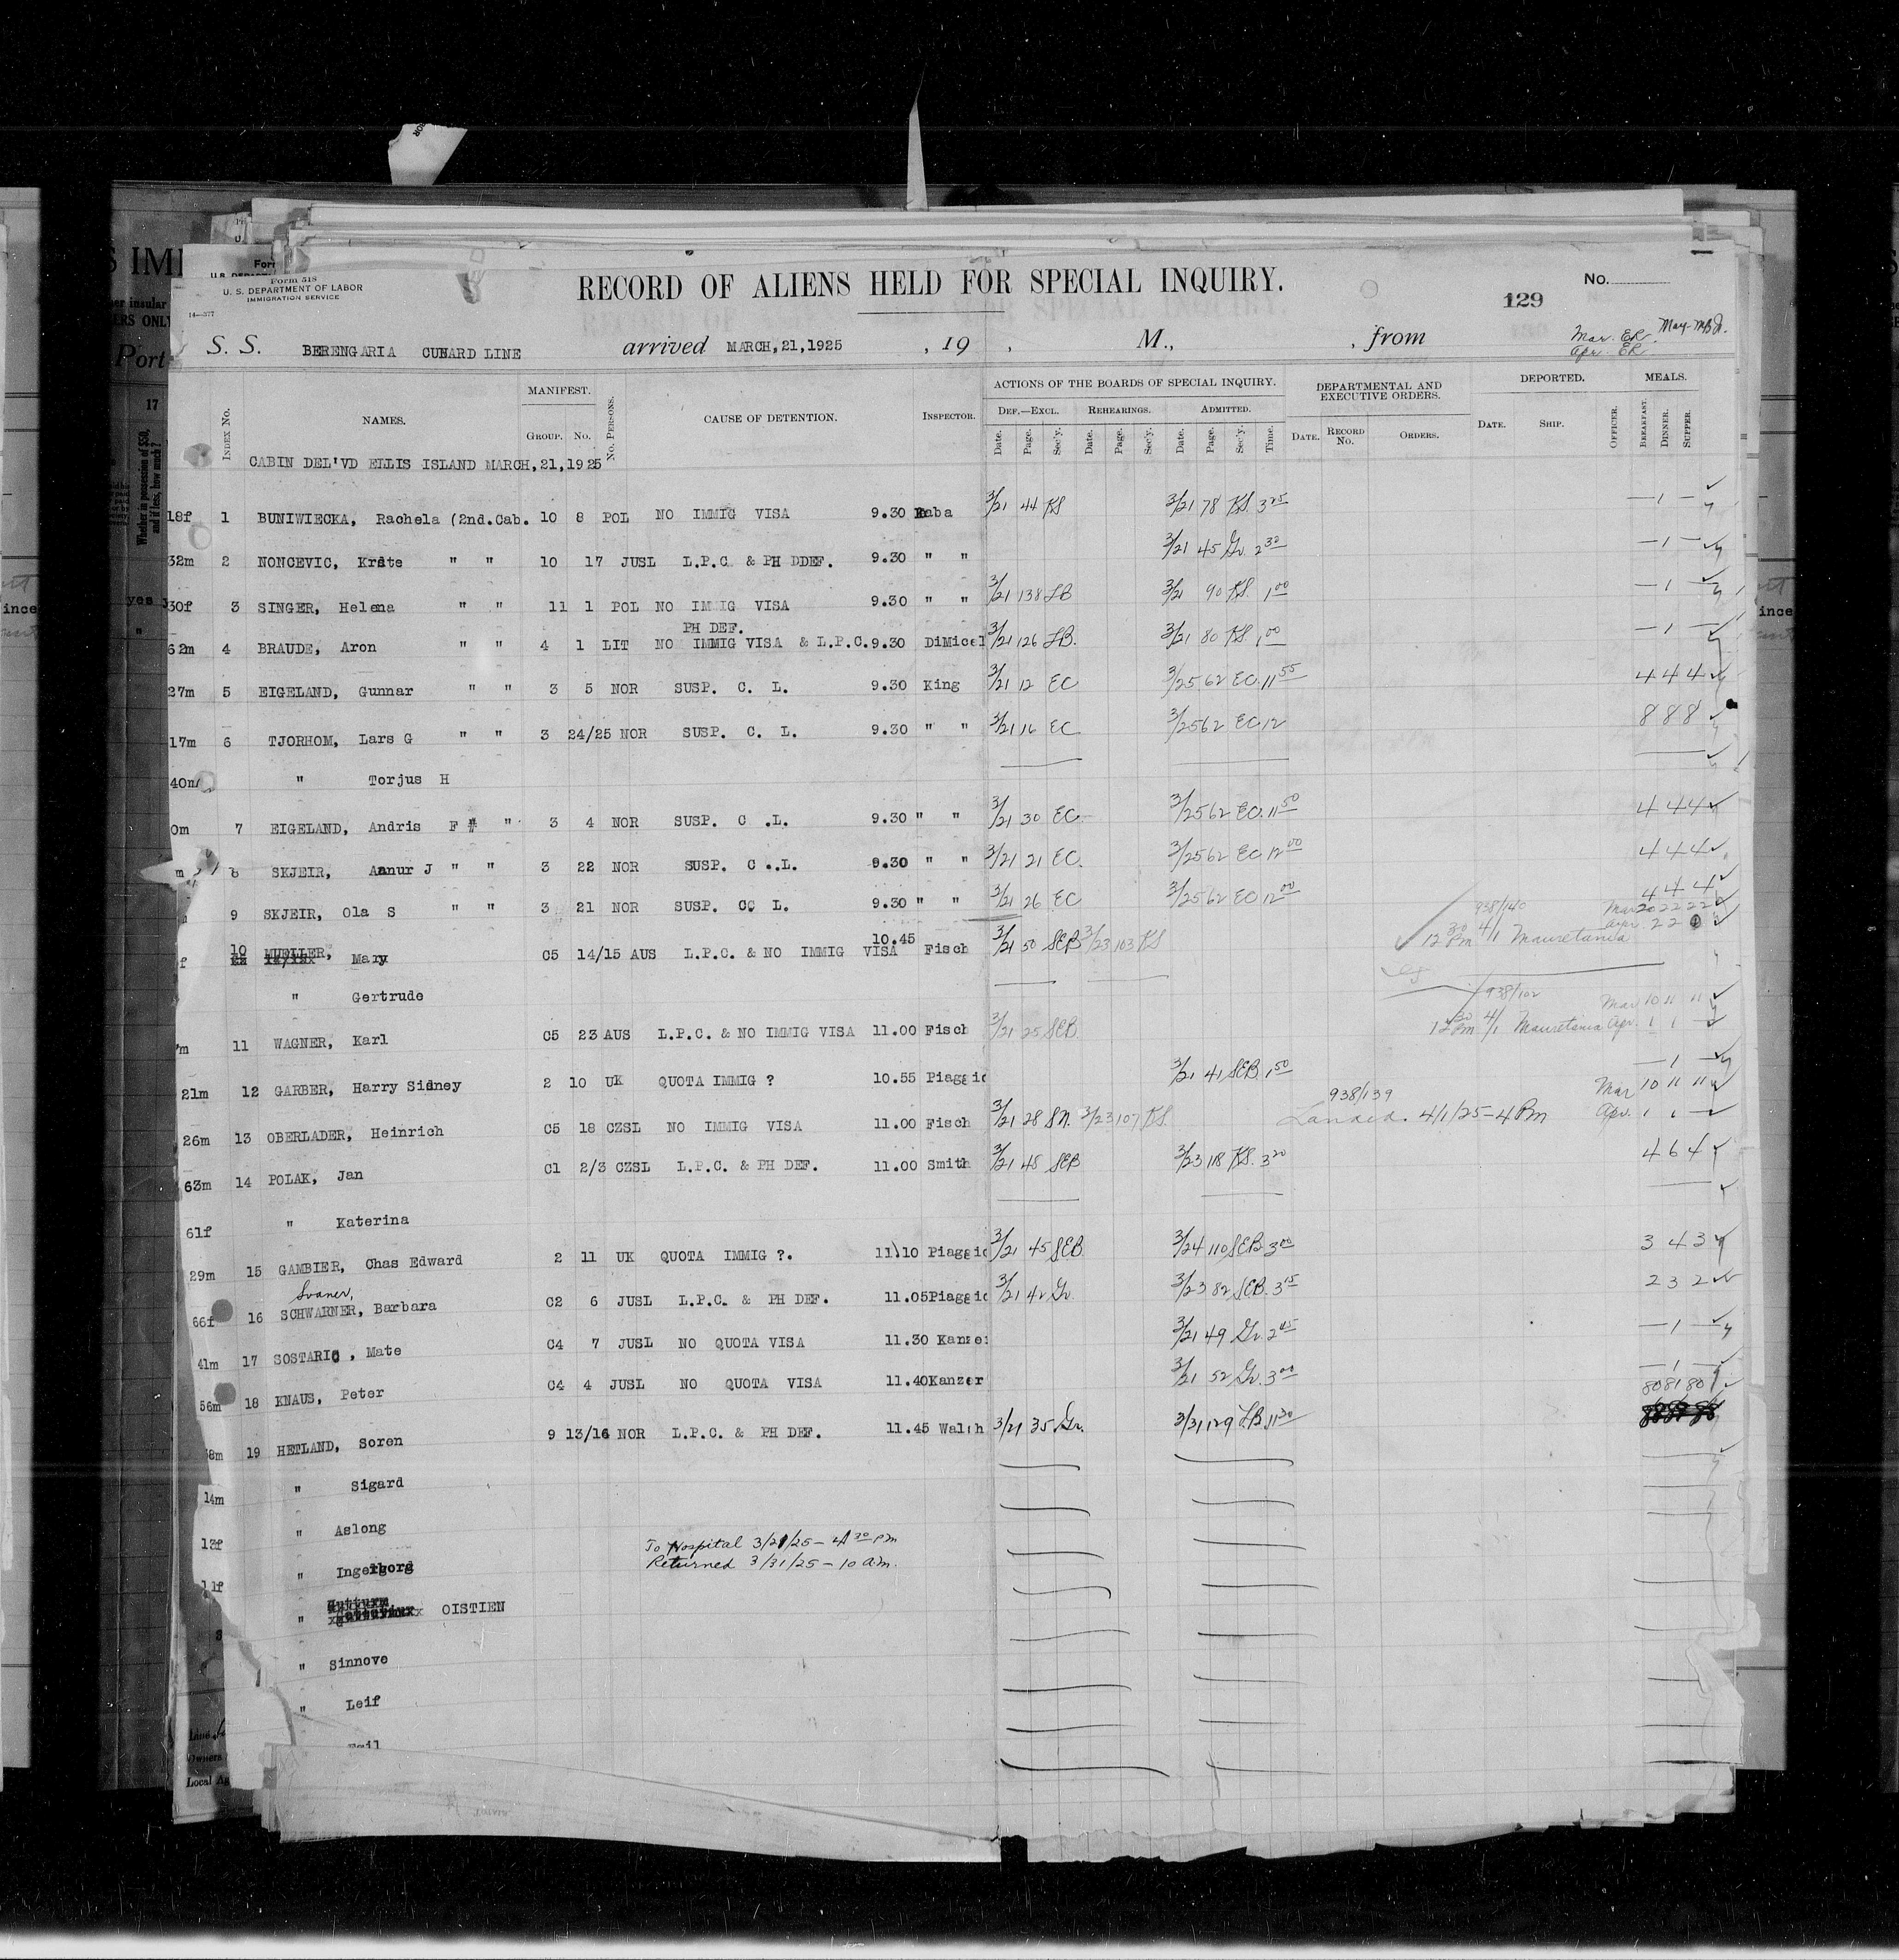 Form 518
U. S. DEPARTMENT OF LABOR
IMMIGRATION SERVICE
14—377
RECORD OF ALIENS HELD FOR SPECIAL INQUIRY.
No.
129
S. S. BERENGARIA CUNARD LINE arrived MARCH,21,1925 , 19 , M., , from
Mar. ER. May-MBJr.
Apr. ER
INDEX No. NAMES. MANIFEST. GROUP. No. No. PERSONS. CAUSE OF DETENTION. INSPECTOR. ACTIONS OF THE BOARDS OF SPECIAL INQUIRY. DEPARTMENTAL AND EXECUTIVE ORDERS. DEPORTED. MEALS.
DEF.—EXCL. REHEARINGS. ADMITTED.
Date. Page. Sec'y. Date. Page. Sec'y. Date. Page. Sec'y. Time. DATE. RECORD No. ORDERS. DATE. SHIP. OFFICER. BREAKFAST. DINNER. SUPPER.
CABIN DEL'VD ELLIS ISLAND MARCH,21,1925
18f 1 BUNIWIECKA, Rachela (2nd.Cab. 10 8 POL NO IMMIG VISA 9.30 Raba 3/21 44 KS 3/21 78 KS. 3 25 — 1 —
32m 2 NONCEVIC, Krste " " 10 17 JUSL L.P.C & PH DDEF. 9.30 " " 3/21 45 Gr. 2 32 — 1 —
30f 3 SINGER, Helena " " 11 1 POL NO IMMIG VISA 9.30 " " 3/21 138 LB 3/21 90 KS. 1 00 — 1 —
PH DEF.
62m 4 BRAUDE, Aron " " 4 1 LIT NO IMMIG VISA & L.P.C. 9.30 DiMicel 3/21 126 LB. 3/21 80 KS 1 00 — 1 —
27m 5 EIGELAND, Gunnar " " 3 5 NOR SUSP. C. L. 9.30 King 3/21 12 EC 3/25 62 EC. 11 55 4 4 4
17m 6 TJORHOM, Lars G " " 3 24/25 NOR SUSP. C. L. 9.30 " " 3/21 16 EC 3/25 62 EC 12 8 8 8
40m " Torjus H
0m 7 EIGELAND, Andris F # " 3 4 NOR SUSP. C .L. 9.30 " " 3/21 30 EC 3/25 62 EC. 11 50 4 4 4
m 8 SKJEIR, Annur J " " 3 22 NOR SUSP. C ..L. 9.30 " " 3/21 21 EC. 3/25 62 EC 12 00 4 4 4
9 SKJEIR, Ola S " " 3 21 NOR SUSP. CC L. 9.30 " " 3/21 26 EC 3/25 62 EC 12 00 4 4 4
938/140 Mar 20 22 22
f 10 MUELLER, Mary C5 14/15 AUS L.P.C. & NO IMMIG VISA 10.45 Fisch 3/21 50 SEB 3/23 103 KS 12 30 Pm 4/1 Mauretania Apr. 2 2 0
" Gertrude
938/102 Mar 10 11 11
m 11 WAGNER, Karl C5 23 AUS L.P.C. & NO IMMIG VISA 11.00 Fisch 3/21 25 SEB. 12 30 Pm 4/1 Mauretania Apr. 1 1 —
21m 12 GARBER, Harry Sidney 2 10 UK QUOTA IMMIG ? 10.55 Piaggio 3/21 41 SEB. 1 50 — 1 —
938/139 Mar 10 11 11
26m 13 OBERLADER, Heinrich C5 18 CZSL NO IMMIG VISA 11.00 Fisch 3/21 28 SN. 3/23 107 KS. Landed. 4/1/25 - 4 Pm Apr. 1 1 —
63m 14 POLAK, Jan C1 2/3 CZSL L.P.C. & PH DEF. 11.00 Smith 3/21 48 SEB 3/23 118 KS. 3 20 4 6 4
61f " Katerina
29m 15 GAMBIER, Chas Edward 2 11 UK QUOTA IMMIG ?. 11.10 Piaggio 3/21 45 SEB. 3/24 110 SEB. 3 00 3 4 3
Svaner,
66f 16 SCHWARNER, Barbara C2 6 JUSL L.P.C. & PH DEF. 11.05 Piaggio 3/21 42 Gr. 3/23 82 SEB. 3 15 2 3 2
41m 17 SOSTARIC , Mate C4 7 JUSL NO QUOTA VISA 11.30 Kanze 3/21 49 Gr. 2 45 — 1 —
56m 18 KNAUS, Peter C4 4 JUSL NO QUOTA VISA 11.40 Kanzer 3/21 52 Gr. 3 00 — 1 —
80 81 80
38m 19 HETLAND, Soren 9 13/16 NOR L.P.C. & PH DEF. 11.45 Walsh 3/21 35 Gr. 3/31 129 LB. 11 30
14m " Sigard
13f " Aslong
To Hospital 3/21/25 - 4 30 Pm
11f " Ingeborg Returned 3/31/25 - 10 a.m.
" OISTIEN
" Sinnove
" Leif
Egil